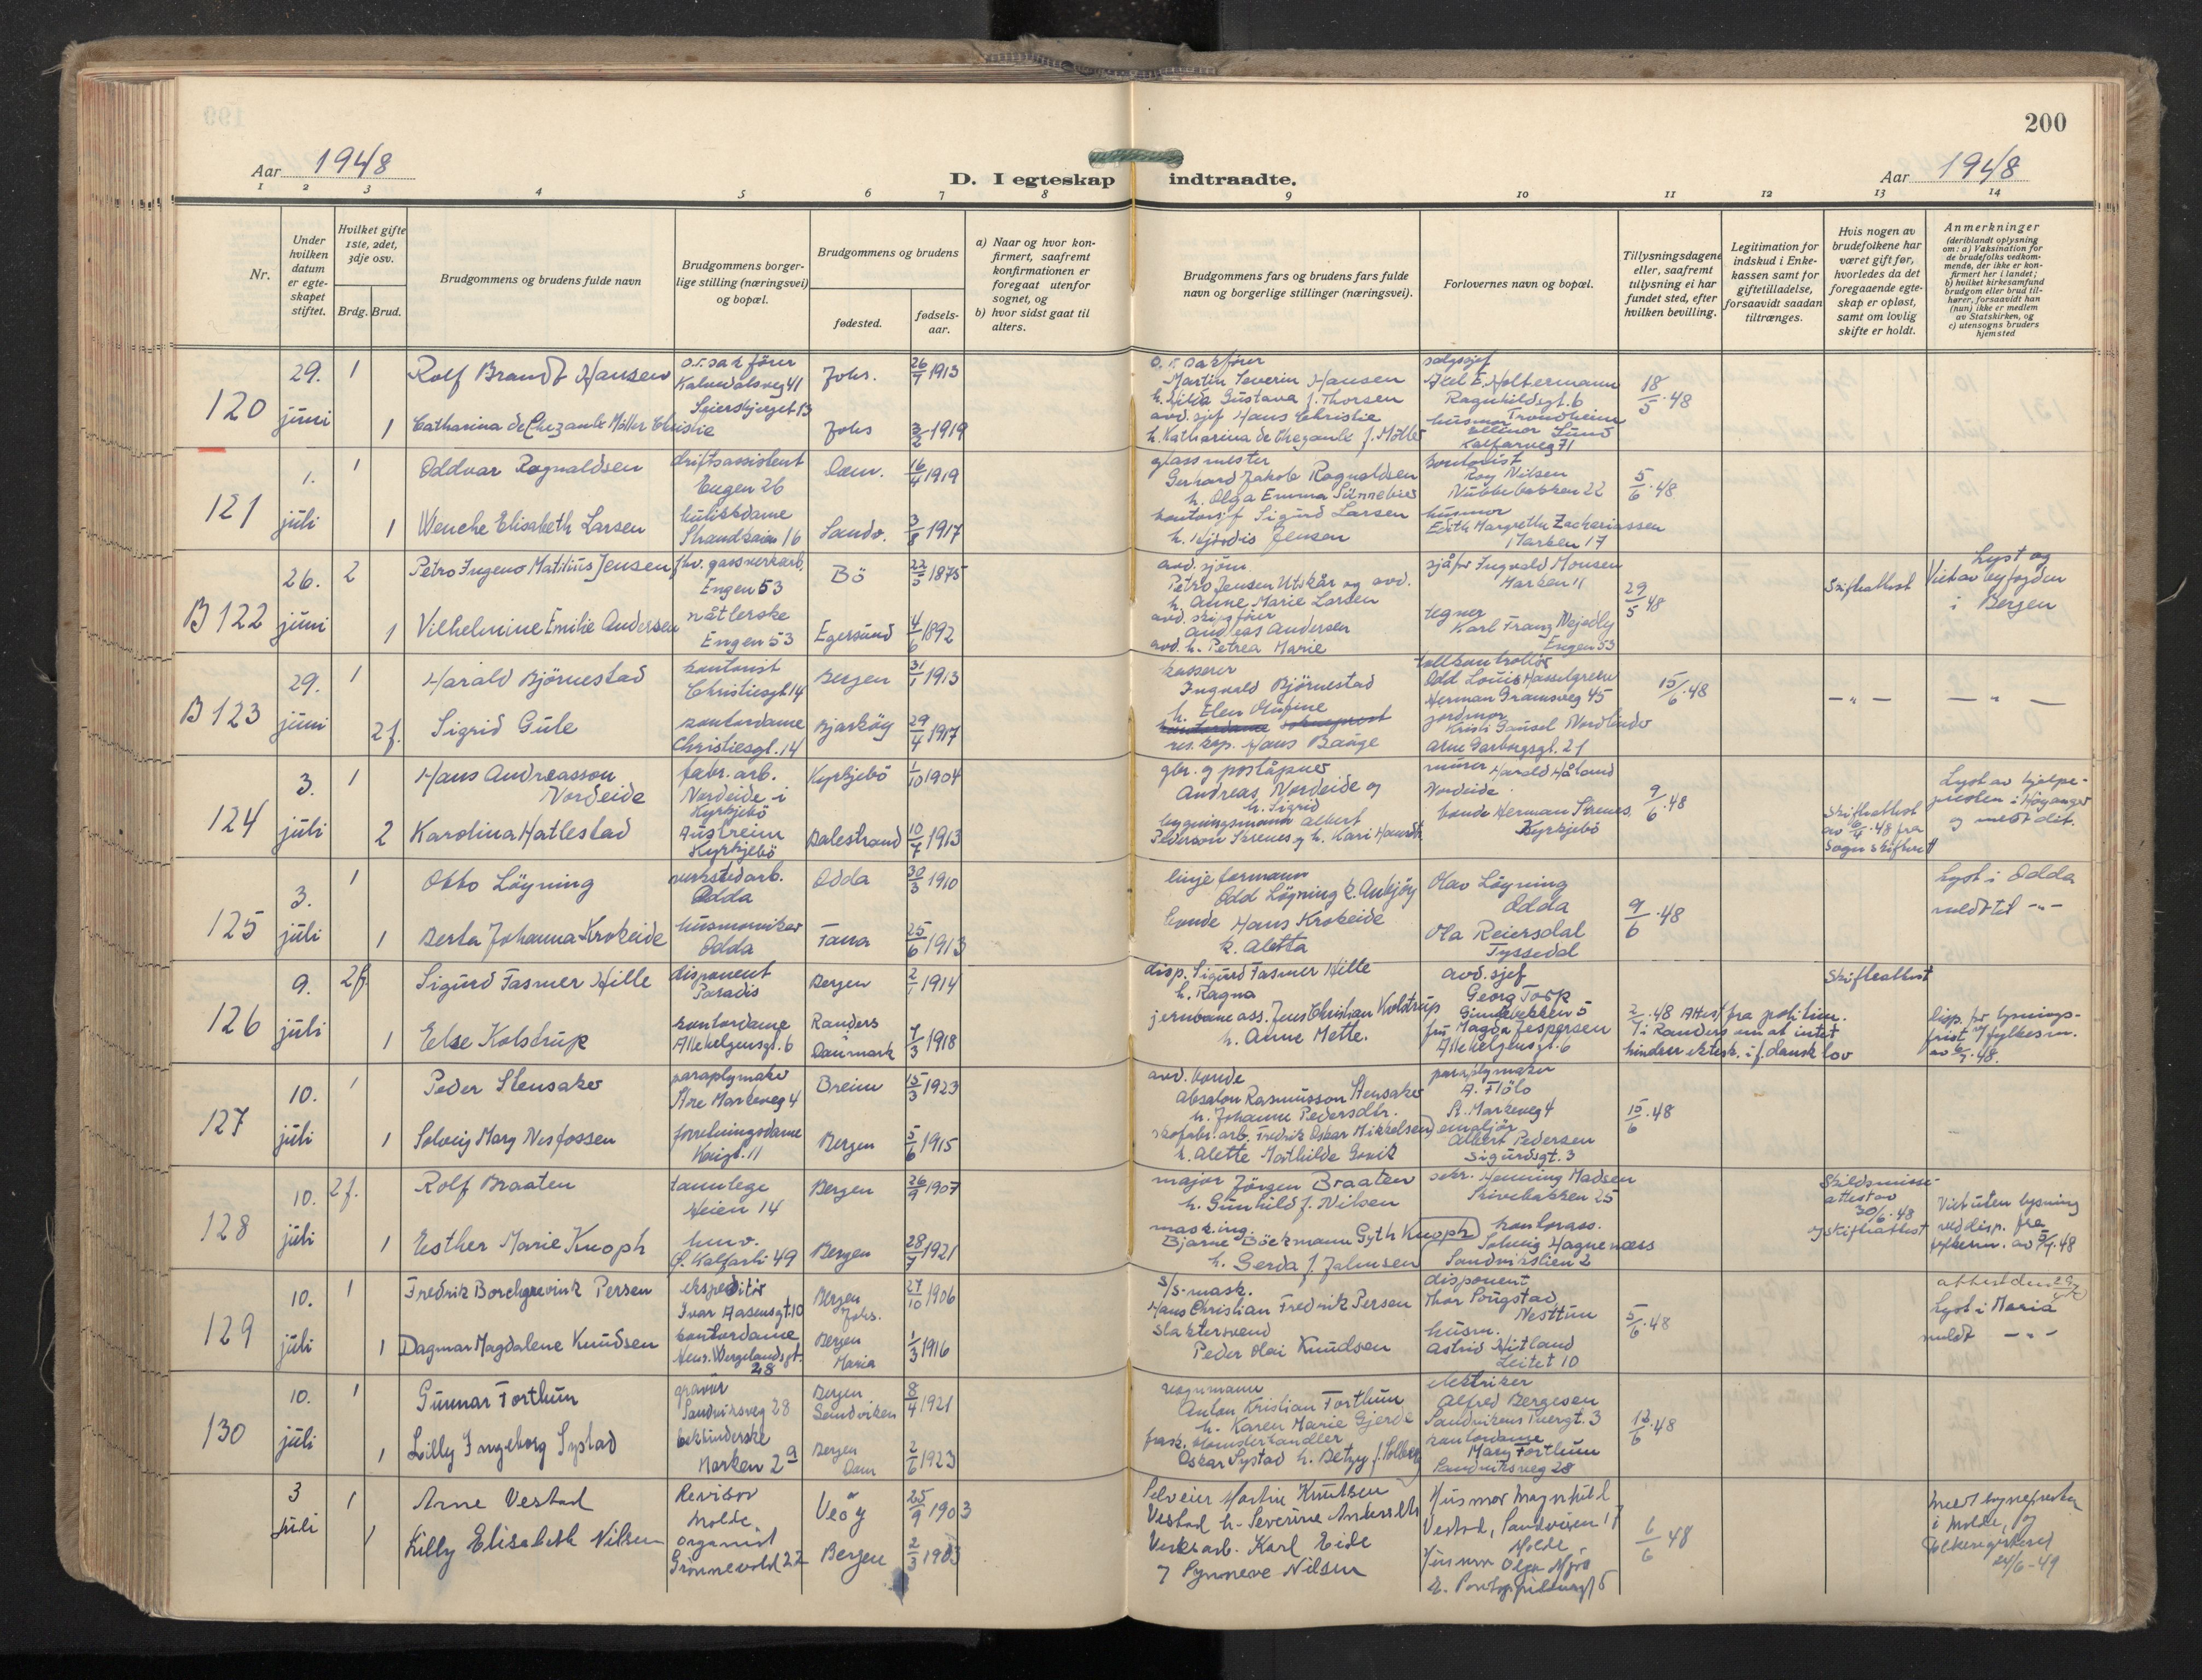 200
Aar 1948
D. I egteskap indtraadte.
Aar 1948
1 2 3 4 5 6 7 8 9 10 11 12 13 14
Nr.
Under hvilken datum er egteskapet stiftet.
Hvilket gifte 1ste, 2det, 3dje osv.
Brdg. Brud.
Brudgommens og brudens fulde navn
Brudgommens borgerlige stilling (næringsvei) og bopæl.
Brudgommens og brudens
fødested.
fødselsaar.
a) Naar og hvor konfirmert, saafremt konfirmationen er foregaat utenfor sognet, og
b) hvor sidst gaat til alters.
Brudgommens fars og brudens fars fulde navn og borgerlige stillinger (næringsvei).
Forlovernes navn og bopæl.
Tillysningsdagene eller, saafremt tillysning ei har fundet sted, efter hvilken bevilling.
Legitimation for indskud i Enkekassen samt for giftetilladelse, forsaavidt saadan tiltrænges.
Hvis nogen av brudefolkene har været gift før, hvorledes da det foregaaende egteskap er opløst, samt om lovlig skifte er holdt.
Anmerkninger
(deriblandt oplysning om: a) Vaksination for de brudefolks vedkommende, der ikke er konfirmert her i landet; b) hvilket kirkesamfund brudgom eller brud tilhører, forsaavidt han (hun) ikke er medlem av Statskirken, og c) utensogns bruders hjemsted
120
29. juni
1
Rolf Brandt Hansen
o.r.sakfører
Kalvedalsveg 41
Johs.
26/7 1913
o.r.sakfører
Martin Severin Hansen
h. Hilda Gustava f. Thorsen
salgssjef
Axel E. Holtermann
Ragnhildsgt. 6
Trondheim
18/5.48
1
Catharina de Chezaule Möller Christie
Seierbjerget 13
Johs
3/2 1919
avd. sjef Hans Christie
h. Katharina de Chezaule f. Möller
husmor
Ellinor Lund
Kalfarveg 71
121
1. juli
1
Oddvar Ragnaldsen
driftsassistent
Engen 26
Dom.
16/4 1919
glassmester
Gerhard Jakob Ragnaldsen
h. Olga Emma
kontorist
Roy Nilsen
Nubbebakken 22
5/6.48
1
Wenche Elisabeth Larsen
Strandkaien 16
Sandv.
3/8 1917
kontorsjef Sigurd Larsen
h. Hjördis Jensen
husmor
Edith Margrethe Zachariassen
Marken 17
B 122
26. juni
2
Petro Ingeno Matilius Jensen
fhv. gassverkarb.
Engen 53
Bö
22/5 1875
avd. sjöm.
Petro Jensen Utskår og avd.
h. Anne Marie Larsen
sjåför Ingvald Monsen
Marken 11
29/5 48
Skifteattest
Lyst og
Viet av byfogden
i Bergen
1
Vilhelmine Emilie Andersen
nåtlerske
Engen 53
Egersund
4/6 1892
avd. skipsfører
Andreas Andersen
avd. h. Petrea Marie
tegner
Karl Franz Nejedly
Engen 53
B 123
29. juni
1
Harald Björnestad
kontorist
Christiesgt. 14
Bergen
31/1 1913
kasserer
Ingvald Björnestad
h. Elen Olufine
tollkontrollör
Odd Louis Hasselgreen
Herman Gransveg 45
15/6.48
— „ —
— „ —
2 f.
Sigrid Gule
kontordame
Christiesgt. 14
Bjarköy
29/4 1917
res. kap. Hans Baage
jordmor
Kristi Gansel Nordlinder
Arne Garborgsgt. 21
124
3. juli
1
Hans Andreasson Nordeide
fabr. arb.
Nordeide i Kyrkjebö
Kyrkjebö
1/10 1904
gbr. og poståpner
Andreas Nordeide og
h. Sigrid
murer Harald Håland
Nordeide
9/6.48
Lyst av hjelpepresten i Höyanger
og meldt dit.
2
Karolina Hatlestad
Austreim
Kyrkjebö
Balestrand
10/7 1913
bygningsmann Albert
Pederson Strenes og h. Kari
bonde Herman Strenes
Kyrkjebö
Skifteattest
av 6/4.48 fra
125
3. juli
1
Otto Löyning
verkstedarb.
Odda
Odda
30/3 1910
linjeformann
Odd Löyning h. Ambjög
Olav Löyning
Odda
9/6.48
Lyst i Odda
meldt til — „ —
1
Berta Johanna Krokeide
Odda
Fana
25/6 1913
bonde Hans Krokeide
h. Aletta
Ola Reiersdal
Tyssedal
126
9. juli
2f.
Sigurd Fasmer Hille
disponent
Paradis
Bergen
2/1 1914
disp. Sigurd Fasmer Hille
h. Ragna
avd. sjef
Georg Torp
Skifteattest
1
Else Kolstrup
kontordame
Allehelgensgt. 6
Randers
Danmark
7/3 1918
jernbaneass. Jens Christian Kolstrup
h. Anne Mette.
fru Magda Jespersen
Allehelgensgt. 6
2/7.48 Attest fra politim.
i Randers om at intet
hindrer ektesk. i f. dansk lov
disp. for lysningsfrist av fylkesm.
127
10. juli
1
Peder Stensaker
paraplymaker
Store Markeveg 4
Breim
15/3 1923
avd. bonde
Absalon Rasmusson Stensaker
h. Johanne Pedersdtr.
paraplymaker
A. Flölo
St. Markeveg 4
15/6.48
1
Solveig Mary Nesfossen
forretningsdame
Bergen
5/6 1915
skofabr. arb. Fredrik Oskar Mikkelsen
h. Alette Mathilde
Albert Pedersen
Sigurdsgt. 3
128
10. juli
2f.
Rolf Braaten
tannlege
Heien 14
Bergen
26/9 1907
major Jörgen Braaten
h. Gunhild f. Nilsen
sekr. Henning Madsen
Skivebakken 25
Skilsmisseattest av
30/6.48
og skifteattest
Viet uten lysning
ved disp. fra
fylkesm. av 5/7.48
1
Esther Marie Knoph
Ø. Kalfarli 49
Bergen
28/7 1921
mask.ing.
Bjarne Böckmann Gyth Knoph
h. Gerda f. Jahnsen
kontorass.
Solveig Hagenæss
Sandvikslien 2
129
10. juli
1
Fredrik Borchgrevink Persen
ekspeditör
Ivar Aasensgt. 10
Bergen
Johs.
27/10 1906
s/s-mask.
Hans Christian Fredrik Persen
disponent
Thor Sougstad
Nesttun
5/6.48
Lyst i Maria
meldt — „ —
1
Dagmar Magdalene Knudsen
kontordame
Henr. Wergelandsgt. 28
Bergen
Maria
1/3 1916
slaktersvend
Peder Olai Knudsen
husm.
Astrid Hitland
Leitet 10
130
10. juli
1
Gunnar Forthun
gravör
Sandviksveg 28
Bergen
Sandviken
8/4 1921
vognmann
Anton Kristian Forthun
h. Karen Marie Gjerde
elektriker
Alfred Bergesen
Sandvikens Tvergt. 3
12/6.48
1
Lilly Ingeborg Systad
Marken 2 a
Bergen
Dom
2/6 1923
blomsterhandler
Oskar Systad h. Betzy f. Solberg
kontordame
Mary Forthun
Sandviksveg 28
3 juli
1
Arne Vestad
Revisor
Molde.
Veöy
25/9 1903
Martin Knutsen
Vestad h. Severine
Husmor Magnhild
Vestad, Sandveien 17
Molde
6/6 48
i Molde, og
24/6-49
1
Lilly Elisabeth Nilsen
organist
Grönnevold 22
Bergen
2/3 1903
Verksarb. Karl Eide
Synneve Nilsen
Husmor Olga Mjös